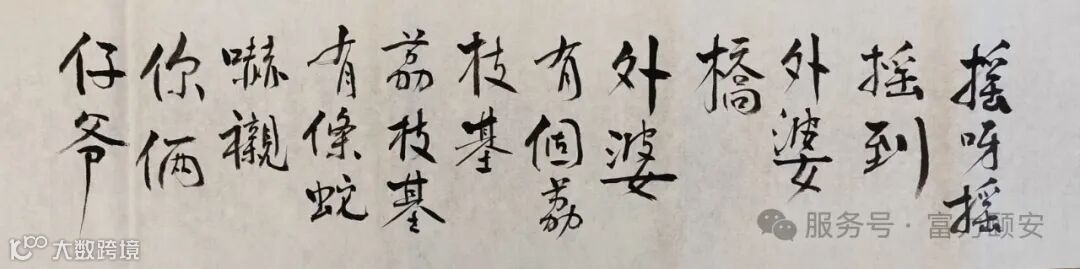 摇呀摇
摇到
外婆
橋
外婆
有個荔
枝基
荔枝基
有條蛇
嚇襯
你俩
仔爷
服务号 · 富力颐安
大数跨境